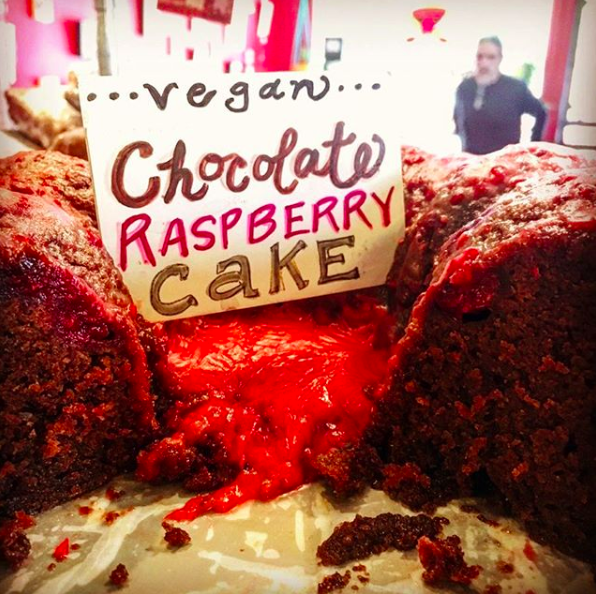 ...vegan...
Chocolate
RASPBERRY
CAKE